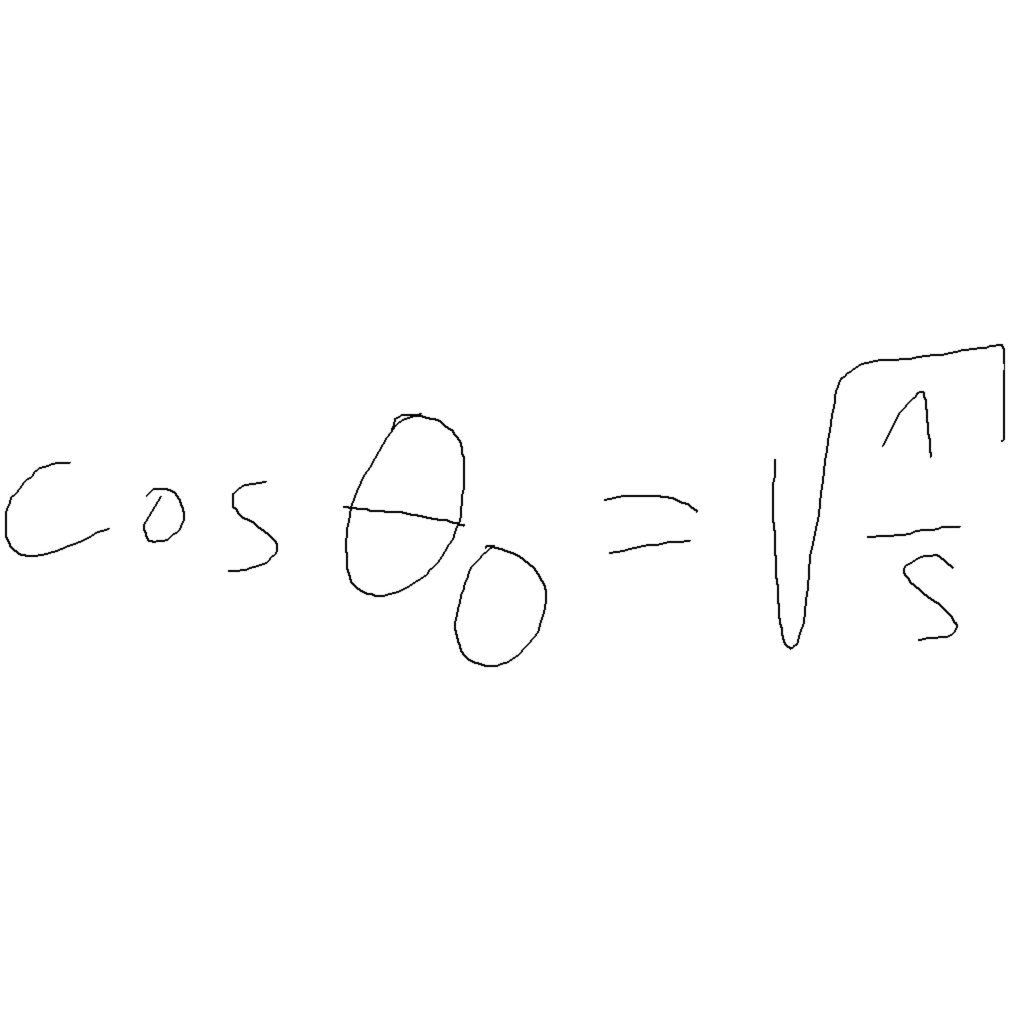 cos θ₀ = √(1/5)